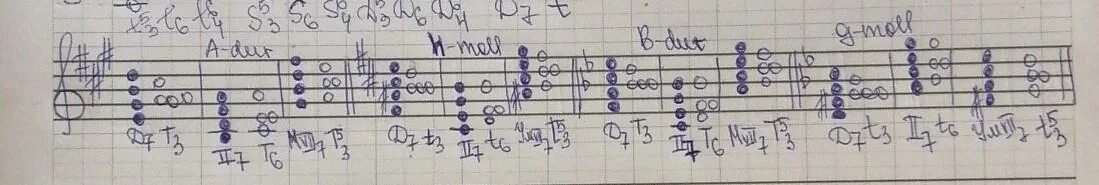 t⁵₃ t₆ t⁶₄ S⁵₃ S₆ S⁶₄ D⁵₃ D₆ D⁶₄ D₇ t
A-dur H-moll B-dur g-moll
D₇ T₃ II₇ T₆ MVII₇ T⁵₃ D₇ t₃ II₇ t₆ УмVII₇ t⁵₃ D₇ T₃ II₇ T₆ MVII₇ T⁵₃ D₇ t₃ II₇ t₆ УмVII₇ t⁵₃